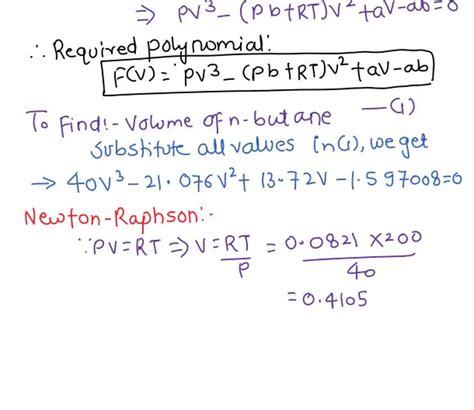 ⇒ PV³ - (Pb+RT)V² + aV - ab = 0
∴ Required polynomial:
F(V) = PV³ - (Pb+RT)V² + aV - ab
—(1)
To find:- Volume of n-butane
Substitute all values in (1), we get
→ 40V³ - 21.076V² + 13.72V - 1.597008 = 0
Newton-Raphson:-
∵ PV = RT ⇒ V = RT/P = 0.0821 × 200 / 40
= 0.4105